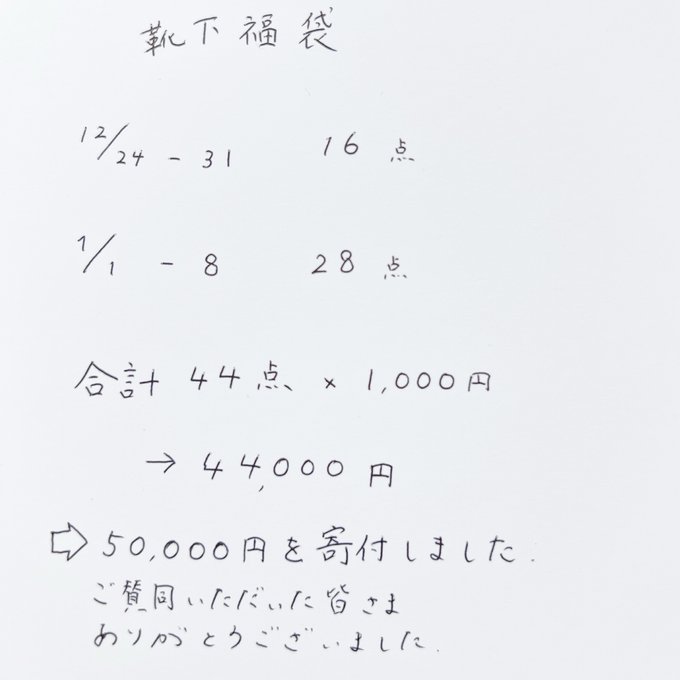 靴下福袋
12/24 - 31 16点
1/1 - 8 28点
合計 44点 × 1,000円
→ 44,000円
⇨ 50,000円を寄付しました.
ご賛同いただいた皆さま
ありがとうございました.